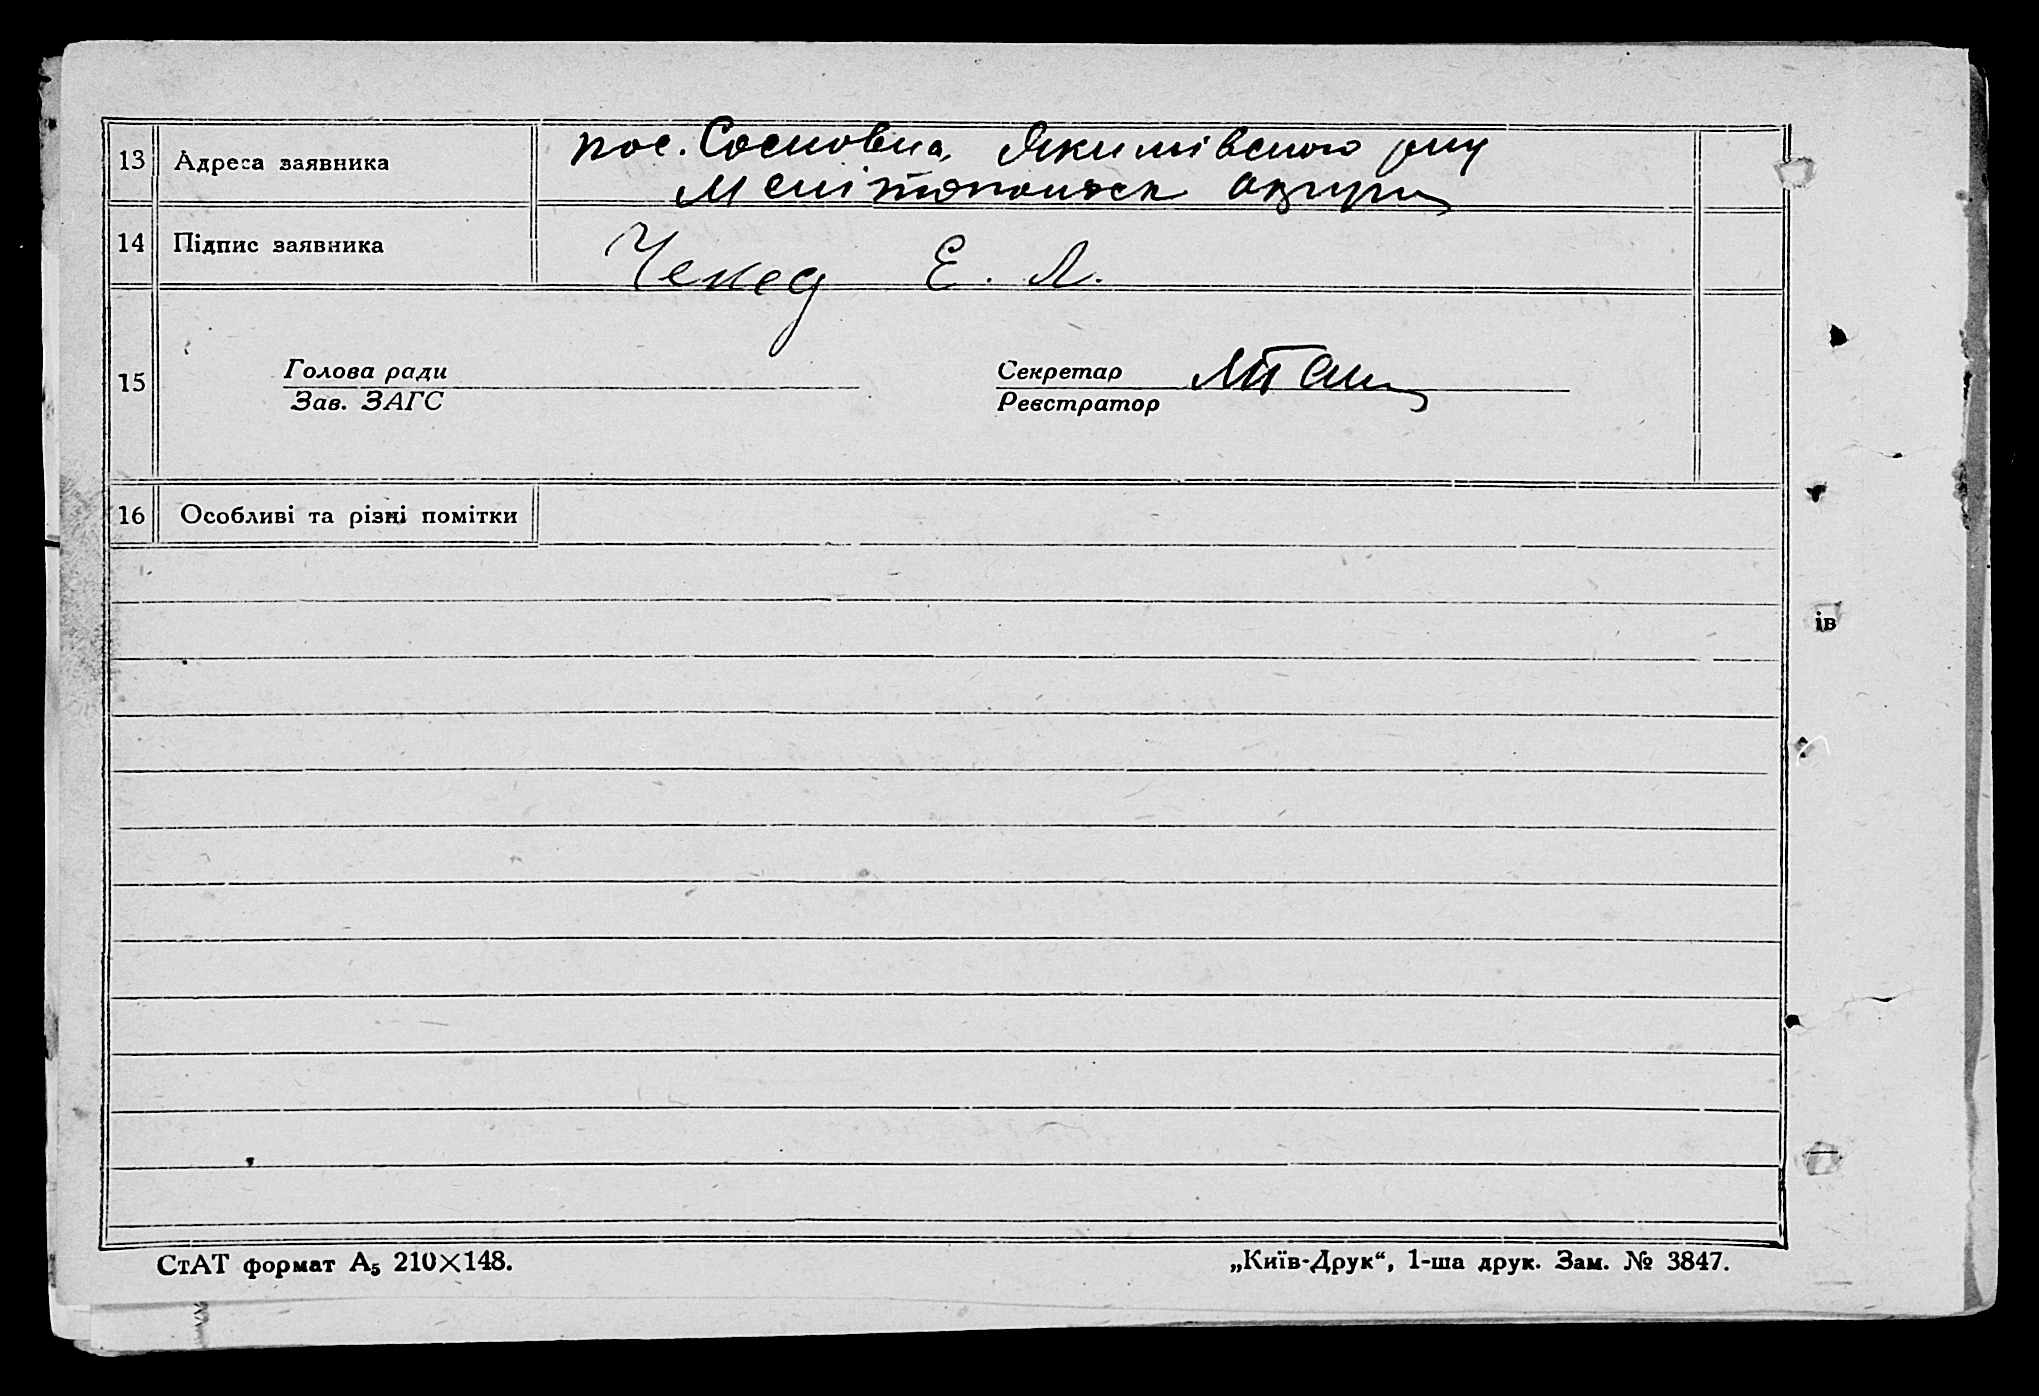 13 Адреса заявника пос. Сосновка, Якимівського р-ну
Мелітопольск округи
14 Підпис заявника Е. Л.
15 Голова ради Секретар
Зав. ЗАГС Реєстратор
16 Особливі та різні помітки
ів
СтАТ формат А₅ 210×148. „Київ-Друк“, 1-ша друк. Зам. № 3847.